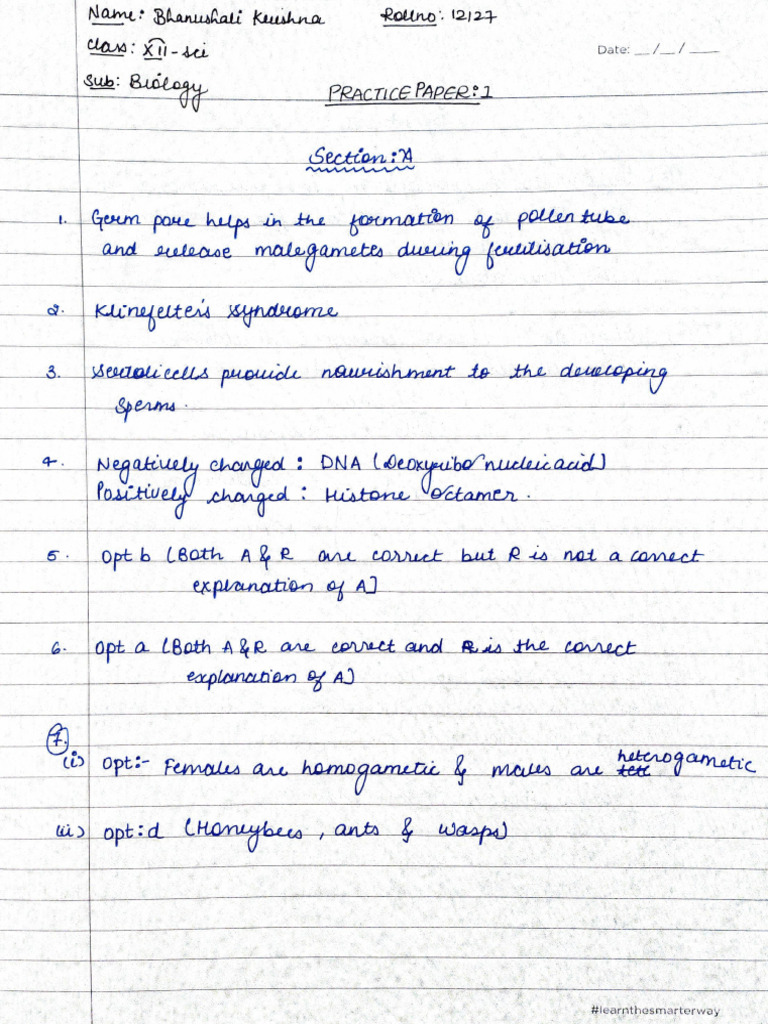 Name: Bhanushali Krishna Rollno: 12127
Class: XII-sci
Date: __/__/____
Sub: Biology
PRACTICE PAPER: 1
Section: A
1. Germ pore helps in the formation of pollen tube
and release malegametes during fertilisation
2. Klinefelter's syndrome
3. Sertolicells provide nourishment to the developing
sperms.
4. Negatively charged : DNA (Deoxyribo nucleic acid)
Positively charged : Histone Octamer.
5. Opt b (Both A & R are correct but R is not a correct
explanation of A]
6. Opt a (Both A & R are correct and R is the correct
explanation of A)
7.
(i) Opt:- Females are homogametic & males are heterogametic
(ii) Opt: d (Honeybees, ants & wasps)
#learnthesmarterway